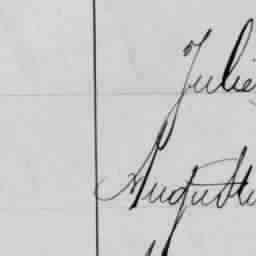 Julie
Augustu